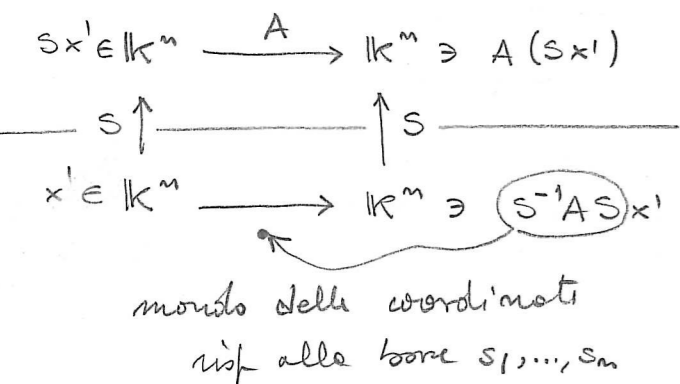 Sx' ∈ 𝕂ⁿ ⟶ A 𝕂ⁿ ∋ A(Sx')
S ↑ ↑ S
x' ∈ 𝕂ⁿ ⟶ 𝕂ⁿ ∋ S⁻¹AS x'
mondo delle coordinate
risp alla base s₁,...,sₙ